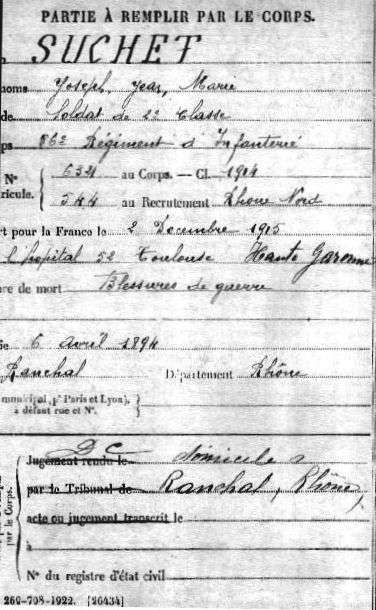 PARTIE À REMPLIR PAR LE CORPS.
SUCHET
noms Joseph, Jean, Marie
de Soldat de 2e Classe
ps 86e Régiment d'Infanterie
N° 634 au Corps. — Cl. 1914
ricule. 544 au Recrutement Rhône Nord
rt pour la France le 2 Décembre 1915
l'hopital 52 Toulouse Haute Garonne
re de mort Blessures de guerre
é le 6 avril 1894
Ranchal Département Rhône
municipal (pr Paris et Lyon),
à défaut rue et N°.
Jugement rendu le DC domicile a
par le Tribunal de Ranchal, (Rhône).
acte ou jugement transcrit le
à
N° du registre d'état civil
par le Corps.
269-708-1922. [26434]